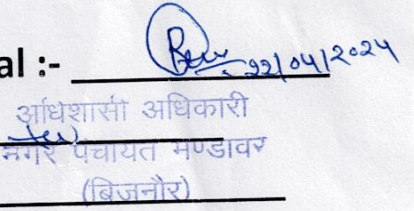 al :- 22/04/2024
अधिशासी अधिकारी
नगर पंचायत मण्डावर
(बिजनौर)